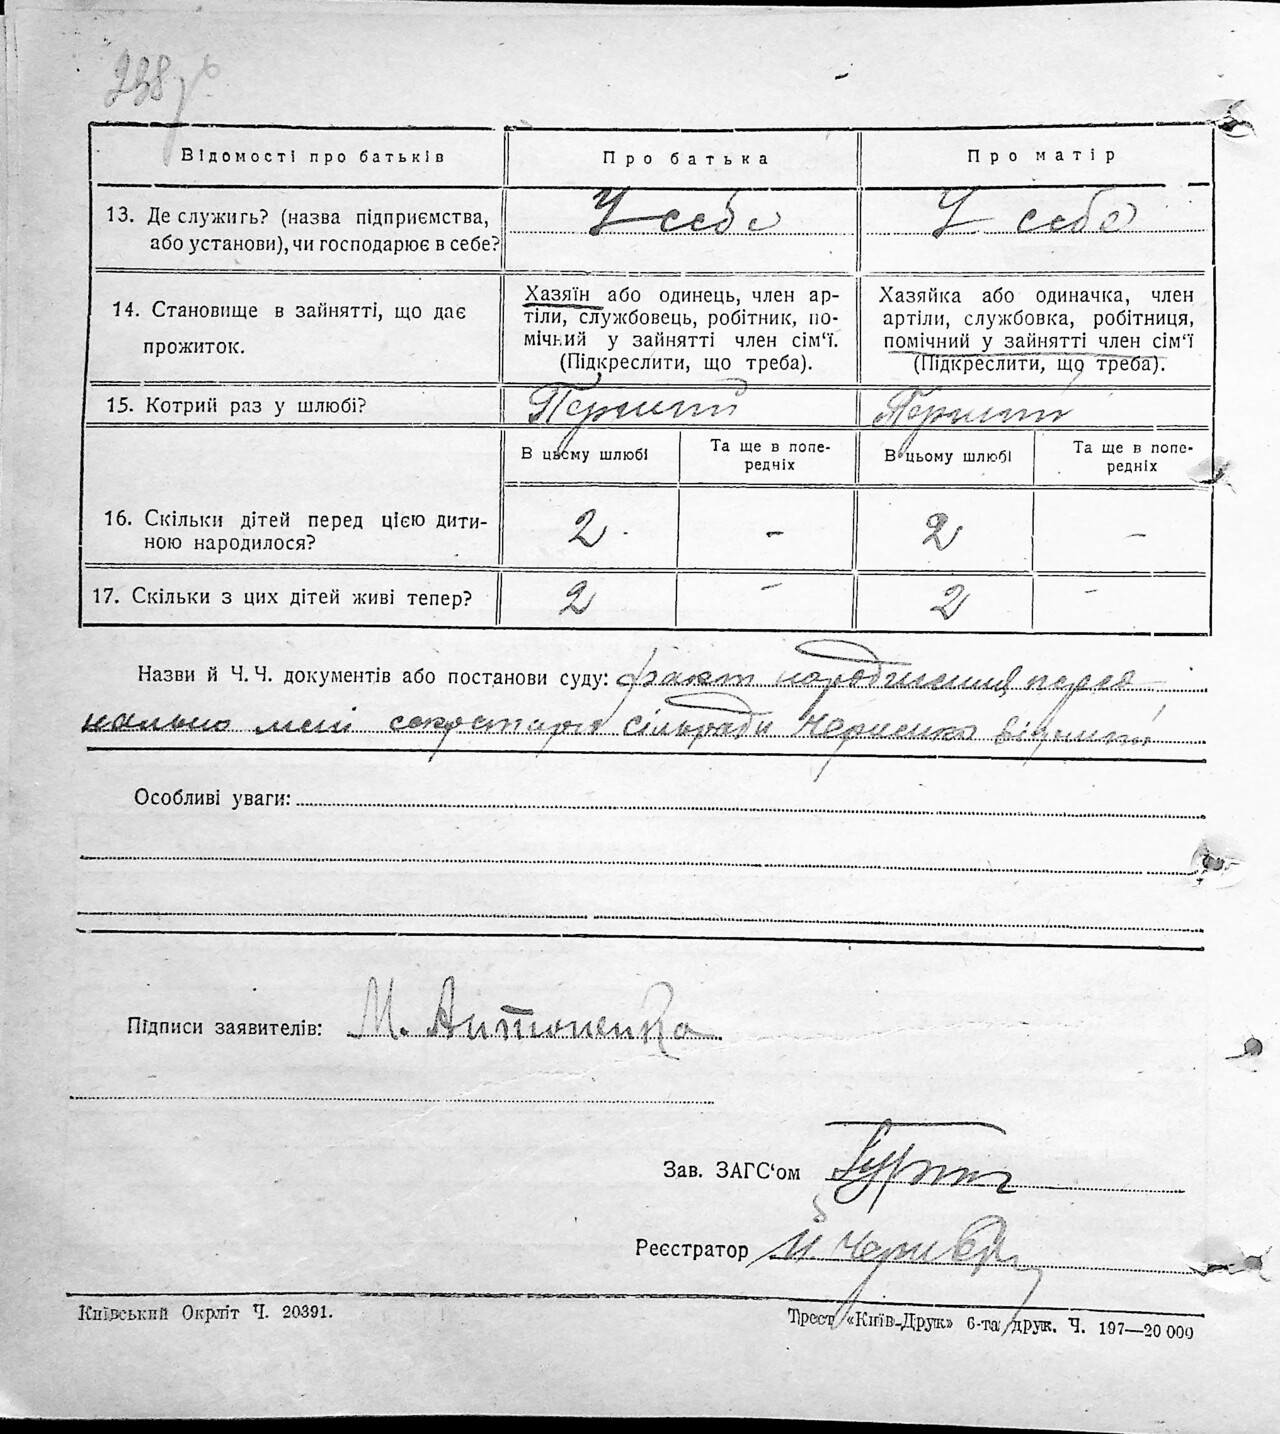 238
Відомості про батьків
Про батька
Про матір
13. Де служить? (назва підприємства,
або установи), чи господарює в себе?
У себе
У себе
14. Становище в зайнятті, що дає
прожиток.
Хазяїн або одинець, член ар-
тіли, службовець, робітник, по-
мічний у зайнятті член сім‘ї.
(Підкреслити, що треба).
Хазяйка або одиначка, член
артіли, службовка, робітниця,
помічний у зайнятті член сім‘ї
(Підкреслити, що треба).
15. Котрий раз у шлюбі?
Перший
Перший
В цьому шлюбі
Та ще в попе-
редніх
В цьому шлюбі
Та ще в попе-
редніх
16. Скільки дітей перед цією дити-
ною народилося?
2
-
2
-
17. Скільки з цих дітей живі тепер?
2
-
2
-
Назви й Ч. Ч. документів або постанови суду: факт народження персо-
нально мені секретарю сільради
Особливі уваги:
Підписи заявителів: М. Антоненко
Зав. ЗАГС‘ом
Реєстратор
Київський Окрліт Ч. 20391.
Трест „Київ-Друк» 6-та друк. Ч. 197—20 000